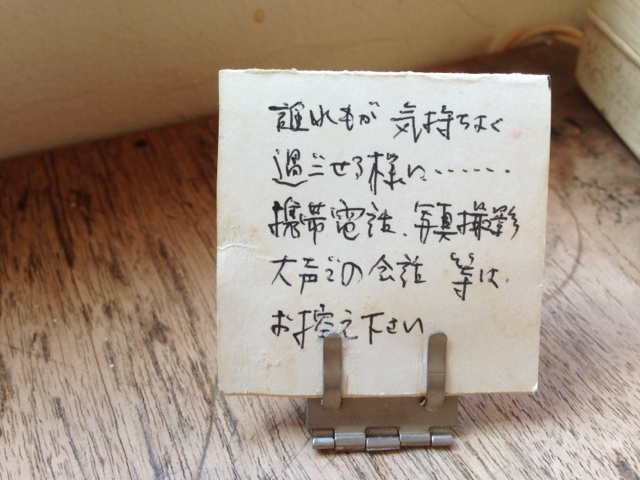 誰れもが 気持ちよく
過ごせる様に・・・・・・
携帯電話、写真撮影
大声での会話 等は、
お控え下さい